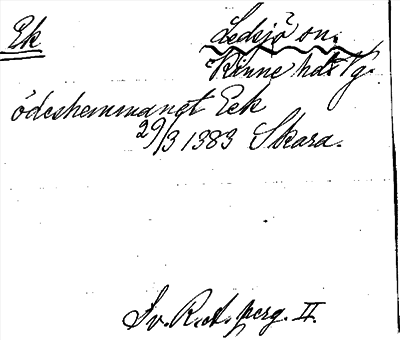 Ek
Ledsjö sn.
Kinne hd. Vg.
ödeshemmanet Eek
29/3 1383 Skara.
Sv. R. A. perg. II.